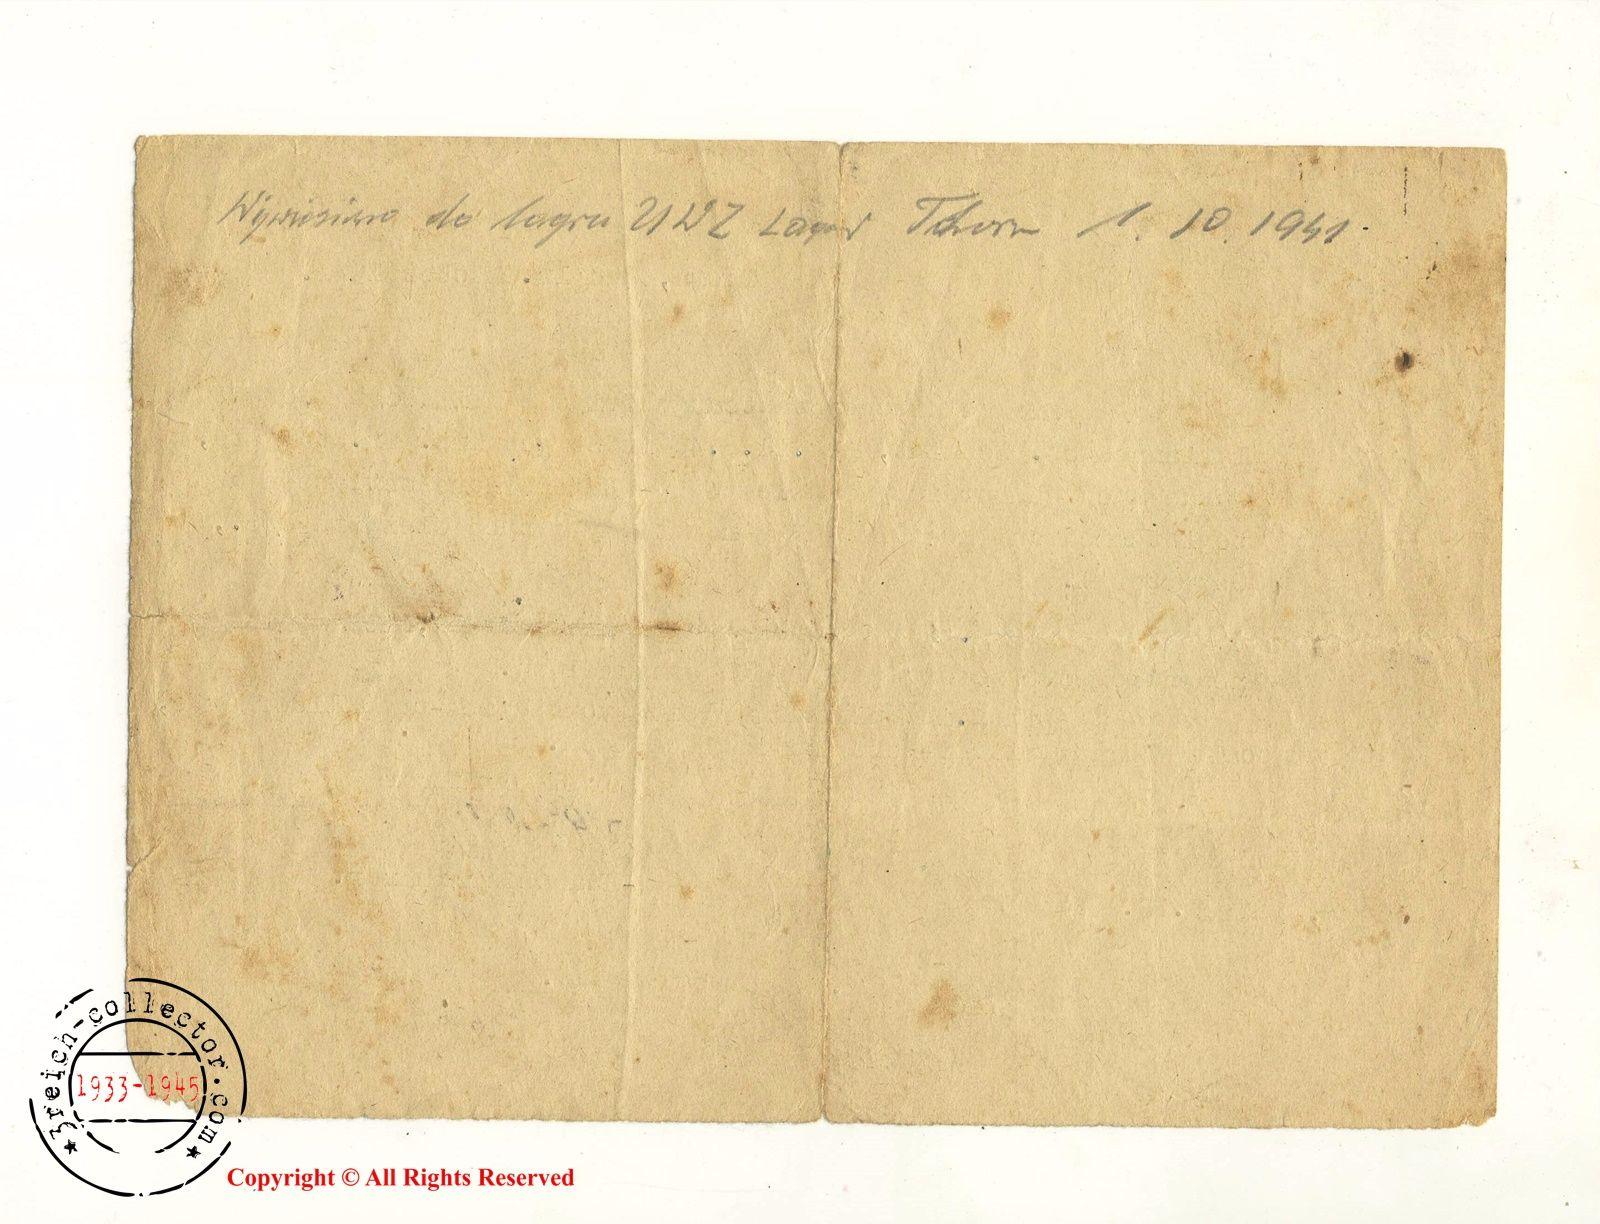 Wywiesiono do lagru UWZ Lager Thorn 1. 10. 1941.
3reich-collector.com
1933-1945
Copyright © All Rights Reserved